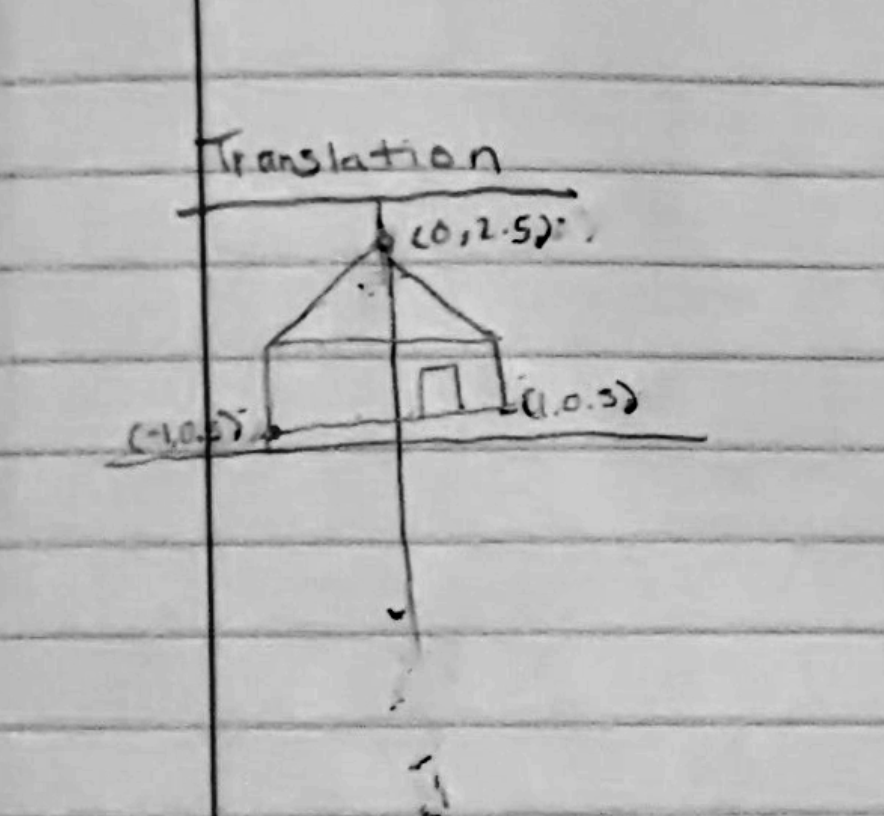 Translation
(0, 2.5)
(1, 0.5)
(-1, 0.5)